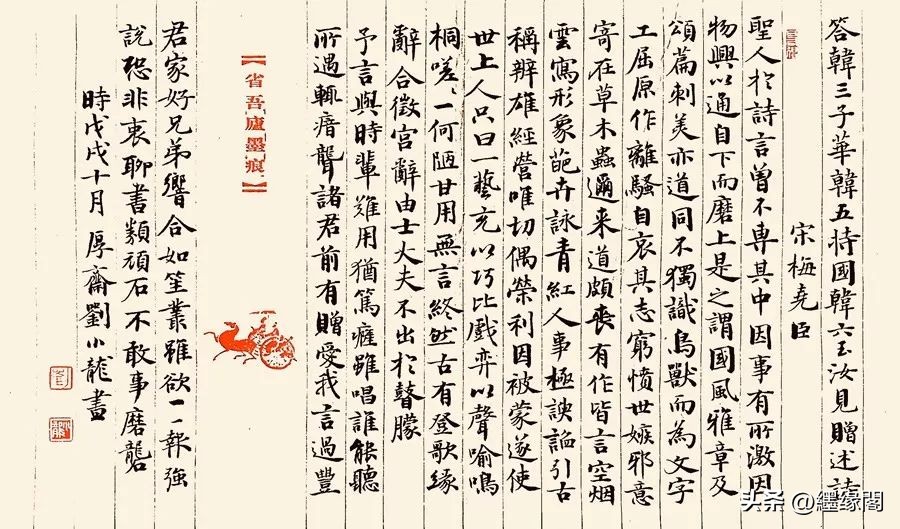 答韓三子華韓五持國韓六玉汝見贈述詩
宋梅堯臣
聖人於詩言曾不專其中因事有所激因
物興以通自下而磨上是之謂國風雅章及
頌篇刺美亦道同不獨識鳥獸而為文字
工屈原作離騷自哀其志窮憤世嫉邪意
寄在草木蟲邇来道頗喪有作皆言空烟
雲寫形象葩卉詠青紅人事極諛諂引古
稱辨雄經營唯切偶榮利因被蒙遂使
世上人只曰一藝充以巧比戲弈以聲喻鳴
桐嗟〻一何陋甘用無言終然古有登歌緣
辭合徵宮辭由士大夫不出於瞽矇
予言與時輩難用猶篤癃雖唱誰能聽
所遇輒瘖聾諸君前有贈愛我言過豐
【省吾廬墨痕】
君家好兄弟響合如笙叢雖欲一一報強
說恐非衷聊書類頑石不敢事磨礱
時戊戌十月厚齋劉小龍書
头条@繼缘閣